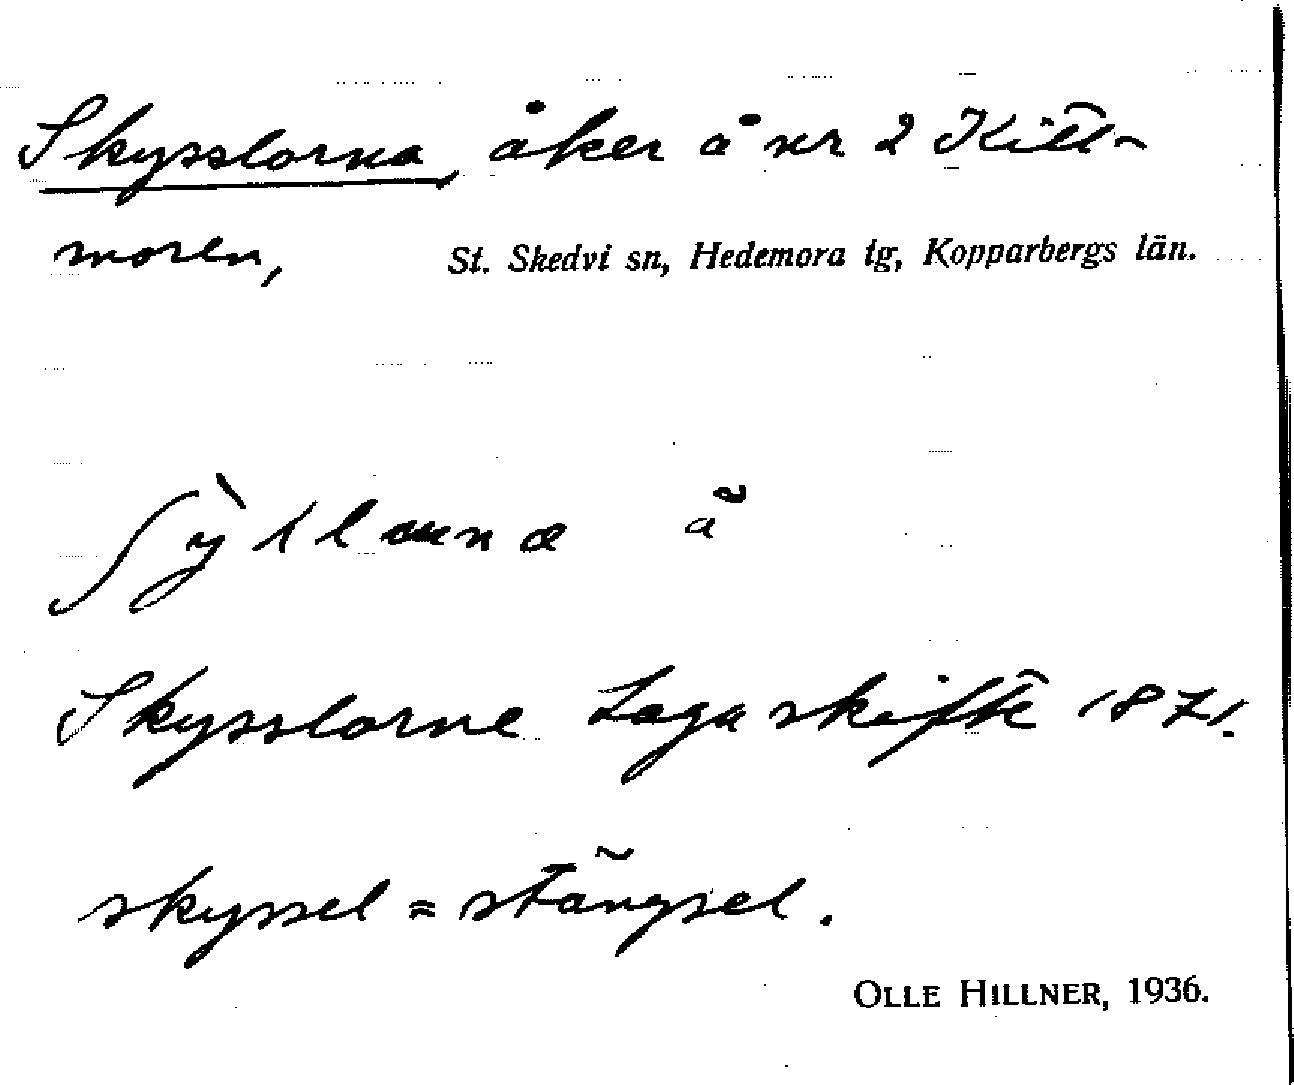 Skysslorna, åker å nr 2 Kitt-
moren, St. Skedvi sn, Hedemora tg, Kopparbergs län.
Skysslorne Laga skifte 1871.
skyssel = stängsel.
OLLE HILLNER, 1936.